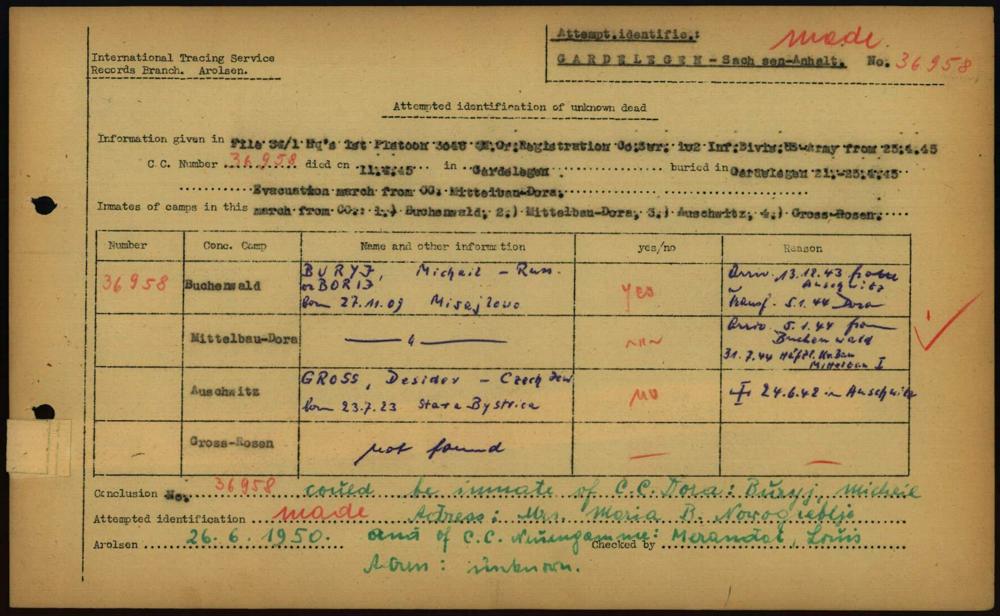 Attempt.identific.:
made
GARDELEGEN - Sachsen-Anhalt. No. 36958
International Tracing Service
Records Branch. Arolsen.
Attempted identification of unknown dead
Information given in File 52/1 Hq's 1st Platoon 3048 Registration Co; 102 Inf.Divis; US-Army from 25.4.45
C.C. Number 36958 died on 11.4.45 in Gardelegen buried in Gardelegen 21.-25.4.45
Evacuation march from CC. Mittelbau-Dora.
Inmates of camps in this march from CC.: 1.) Buchenwald, 2.) Mittelbau-Dora, 3.) Auschwitz, 4.) Gross-Rosen.
Number Conc. Camp Name and other information yes/no Reason
36958 Buchenwald BURYJ, Michail - Russ. yes Arriv. 13.12.43 from
or BORIJ Auschwitz
born 27.11.09 Misajlovo Transf. 5.1.44 Dora
Mittelbau-Dora — " — Arriv. 5.1.44 from
Buchenwald
31.7.44
Mittelbau I
Auschwitz GROSS, Desider - Czech Jew no 24.6.42 in Auschwitz
born 23.7.23 Stara Bystrica
Gross-Rosen not found — —
Conclusion No. 36958 could be inmate of C.C. Dora: Buryj, Michail
Attempted identification made Adress: Mrs. Maria B. Nowogreblje
Arolsen 26.6.1950. and of C.C. Neuengamme: Checked by Merandat, Louis
Adress: unknown.